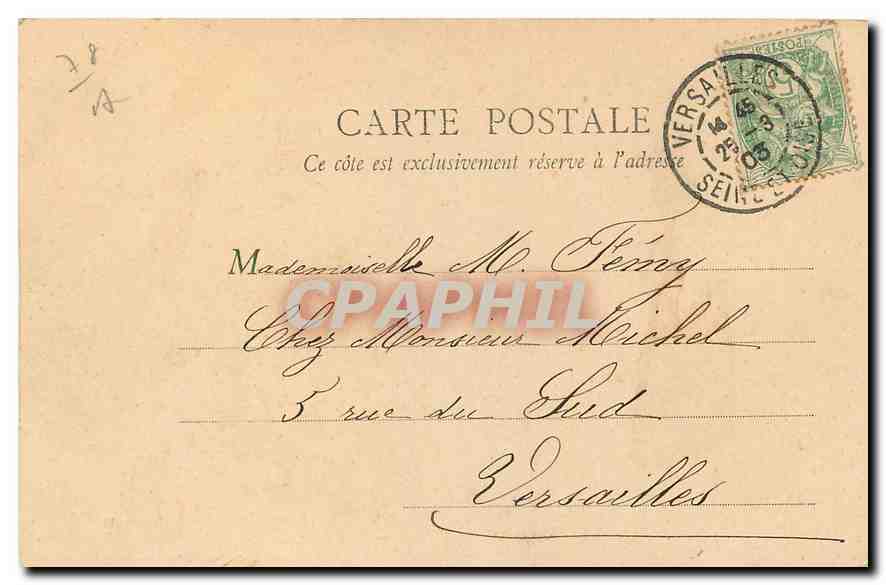 78
A
CARTE POSTALE
Ce côte est exclusivement réserve à l'adresse
VERSAILLES
45
25 -3
03
SEINE ET OISE
POSTES
Mademoiselle M. Fémy
CPAPHIL
Chez Monsieur Michel
5 rue du Sud
Versailles